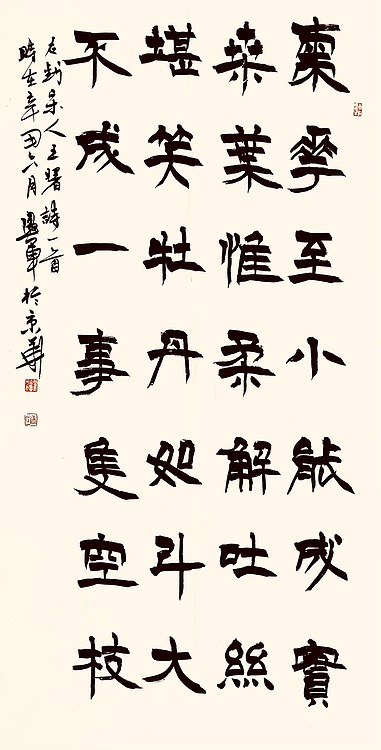 棗華至小能成實
桒葉惟柔解吐絲
堪笑牡丹如斗大
不成一事隻空枝
右鈔宋人王曙詩一首
時在辛丑六月軍於京華